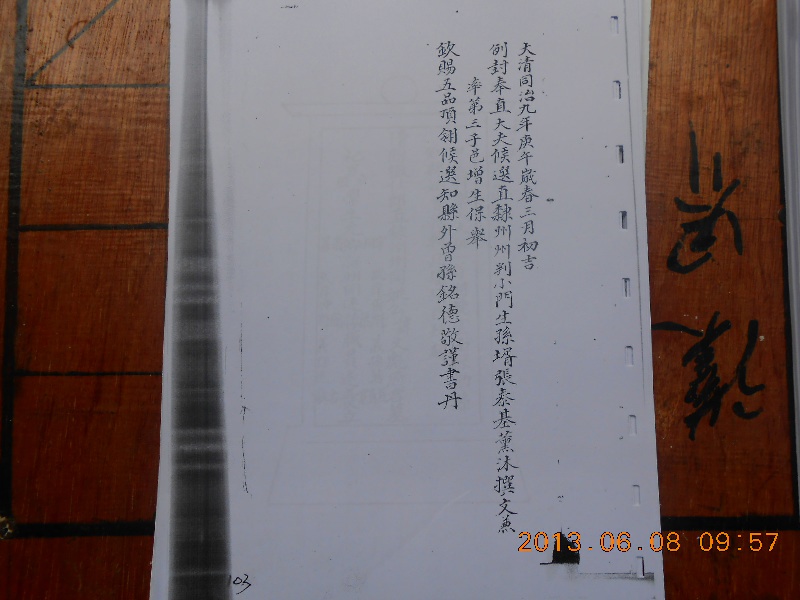 大清同治九年庚午歲春三月初吉
例封奉直大夫候選直隸州州判小門生孫壻張泰基薰沐撰文兼
率第三子邑增生保舉
欽賜五品頂翎候選知縣外曾孫銘德敬謹書丹
103
2013.06.08 09:57